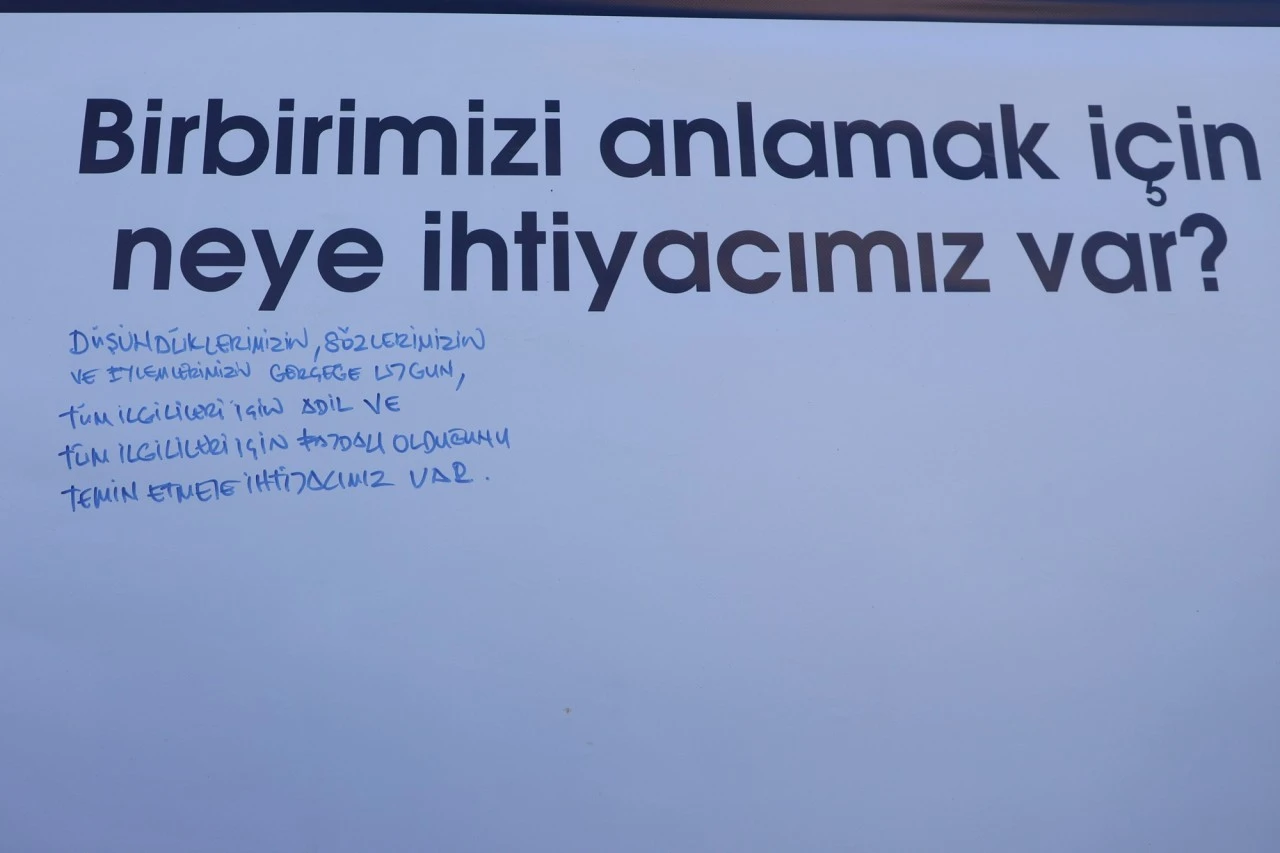 Birbirimizi anlamak için
neye ihtiyacımız var?
DÜŞÜNDÜKLERİMİZİN, SÖZLERİMİZİN
VE EYLEMLERİMİZİN GERÇEĞE UYGUN,
TÜM İLGİLİLERİ İÇİN ADİL VE
TÜM İLGİLİLERİ İÇİN FAYDALI OLDUĞUNU
TEMİN ETMEYE İHTİYACIMIZ VAR.